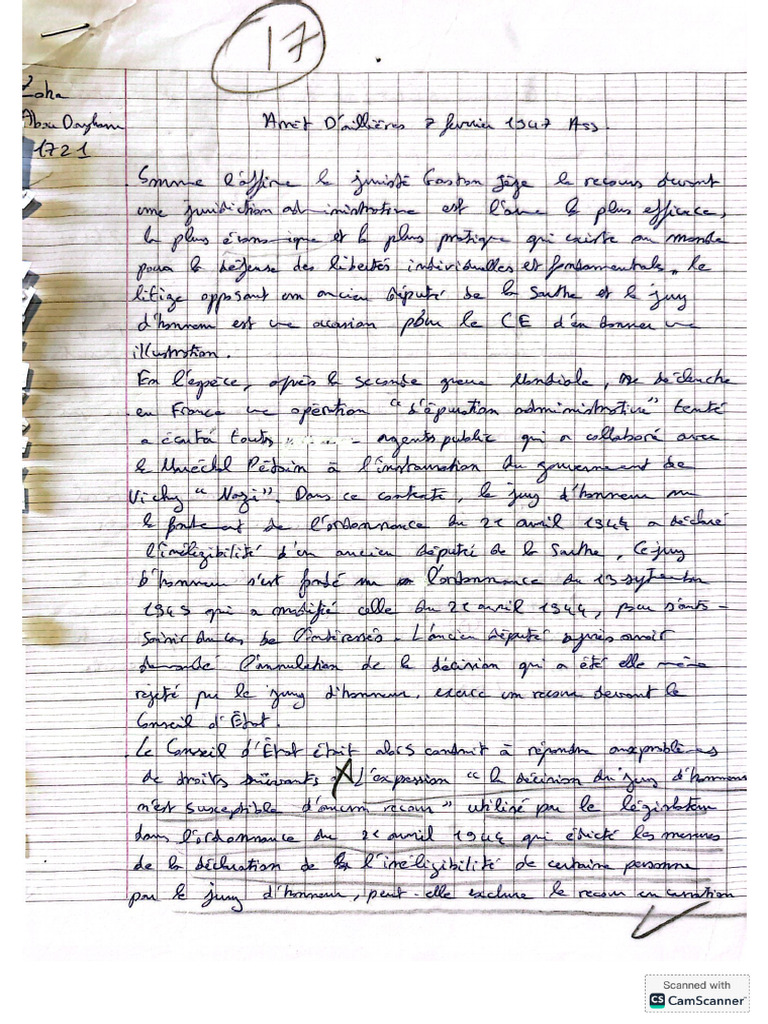 17
Zoha
Abou Daghann
1721
Arrêt D'aillières 7 février 1947 Ass.
Comme l'affirme le juriste Gaston Jèze le recours devant
une juridiction administrative est l'arme la plus efficace,
la plus économique et la plus pratique qui existe au monde
pour la défense des libertés individuelles et fondamentals. le
litige opposant un ancien député de la Sarthe et le jury
d'honneur est une occasion pour le CE d'en donner une
illustration.
En l'espèce, après la seconde guerre Mondiale, se déclenche
en France une opération "d'épuration administrative" tenté
a écarté touts agents public qui a collaboré avec
le Maréchal Pétain à l'instauration du gouvernement de
Vichy "Nazi". Dans ce contexte, le jury d'honneur sur
le fondement de l'ordonnance du 21 avril 1944 a déclaré
l'inéligibilité d'un ancien député de la Sarthe, Ce jury
d'honneur s'est fondé sur l'ordonnance du 13 septembre
1945 qui a modifié celle du 21 avril 1944, pour s'auto-
saisir du cas de l'intéressés. L'ancien député après avoir
demande l'annulation de la décision qui a été elle même
rejeté par le jury d'honneur, exerce un recour devant le
Conseil d'État.
Le Conseil d'État était alors conduit à répondre aux problèmes
de droits suivants L'expression "la décision du jury d'honneur
n'est susceptible d'aucun recour" utilisé par le législateur
dans l'ordonnance du 21 avril 1944 qui édicte les mesures
de la déclaration de l'inéligibilité de certaine personne
par le jury d'honneur, peut-elle exclure le recour en cassation
Scanned with
CS CamScanner